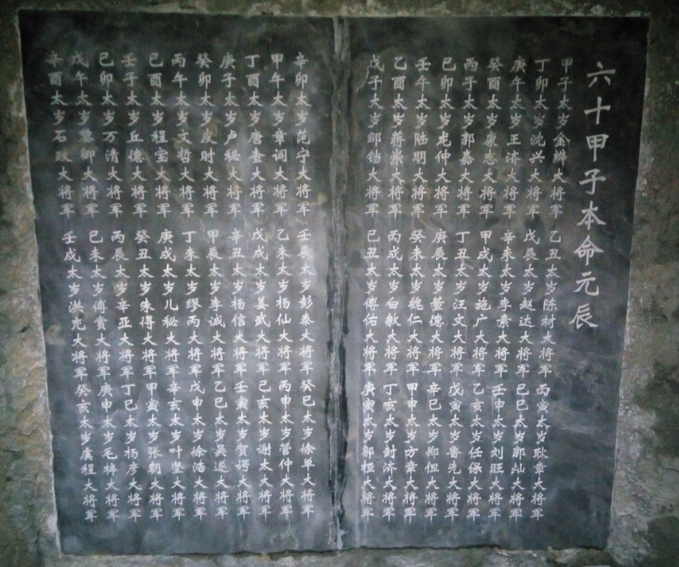 六十甲子本命元辰
甲子太岁金辨大将军 乙丑太岁陈材大将军 丙寅太岁耿章大将军
丁卯太岁沈兴大将军 戊辰太岁赵达大将军 己巳太岁郭灿大将军
庚午太岁王济大将军 辛未太岁李素大将军 壬申太岁刘旺大将军
癸酉太岁康志大将军 甲戌太岁施广大将军 乙亥太岁任保大将军
丙子太岁郭嘉大将军 丁丑太岁汪文大将军 戊寅太岁鲁先大将军
己卯太岁龙仲大将军 庚辰太岁董德大将军 辛巳太岁郑但大将军
壬午太岁陆明大将军 癸未太岁魏仁大将军 甲申太岁方章大将军
乙酉太岁蒋崇大将军 丙戌太岁白敏大将军 丁亥太岁封济大将军
戊子太岁邹铛大将军 己丑太岁傅佑大将军 庚寅太岁邬桓大将军
辛卯太岁范宁大将军 壬辰太岁彭泰大将军 癸巳太岁徐单大将军
甲午太岁章词大将军 乙未太岁杨仙大将军 丙申太岁管仲大将军
丁酉太岁唐查大将军 戊戌太岁姜武大将军 己亥太岁谢太大将军
庚子太岁卢秘大将军 辛丑太岁杨信大将军 壬寅太岁贺谔大将军
癸卯太岁皮时大将军 甲辰太岁李诚大将军 乙巳太岁吴遂大将军
丙午太岁文哲大将军 丁未太岁缪丙大将军 戊申太岁徐浩大将军
己酉太岁程宝大将军 庚戌太岁儿秘大将军 辛亥太岁叶坚大将军
壬子太岁丘德大将军 癸丑太岁朱得大将军 甲寅太岁张朝大将军
乙卯太岁万清大将军 丙辰太岁辛亚大将军 丁巳太岁杨彦大将军
戊午太岁黎卿大将军 己未太岁傅赏大将军 庚申太岁毛梓大将军
辛酉太岁石政大将军 壬戌太岁洪充大将军 癸亥太岁虞程大将军